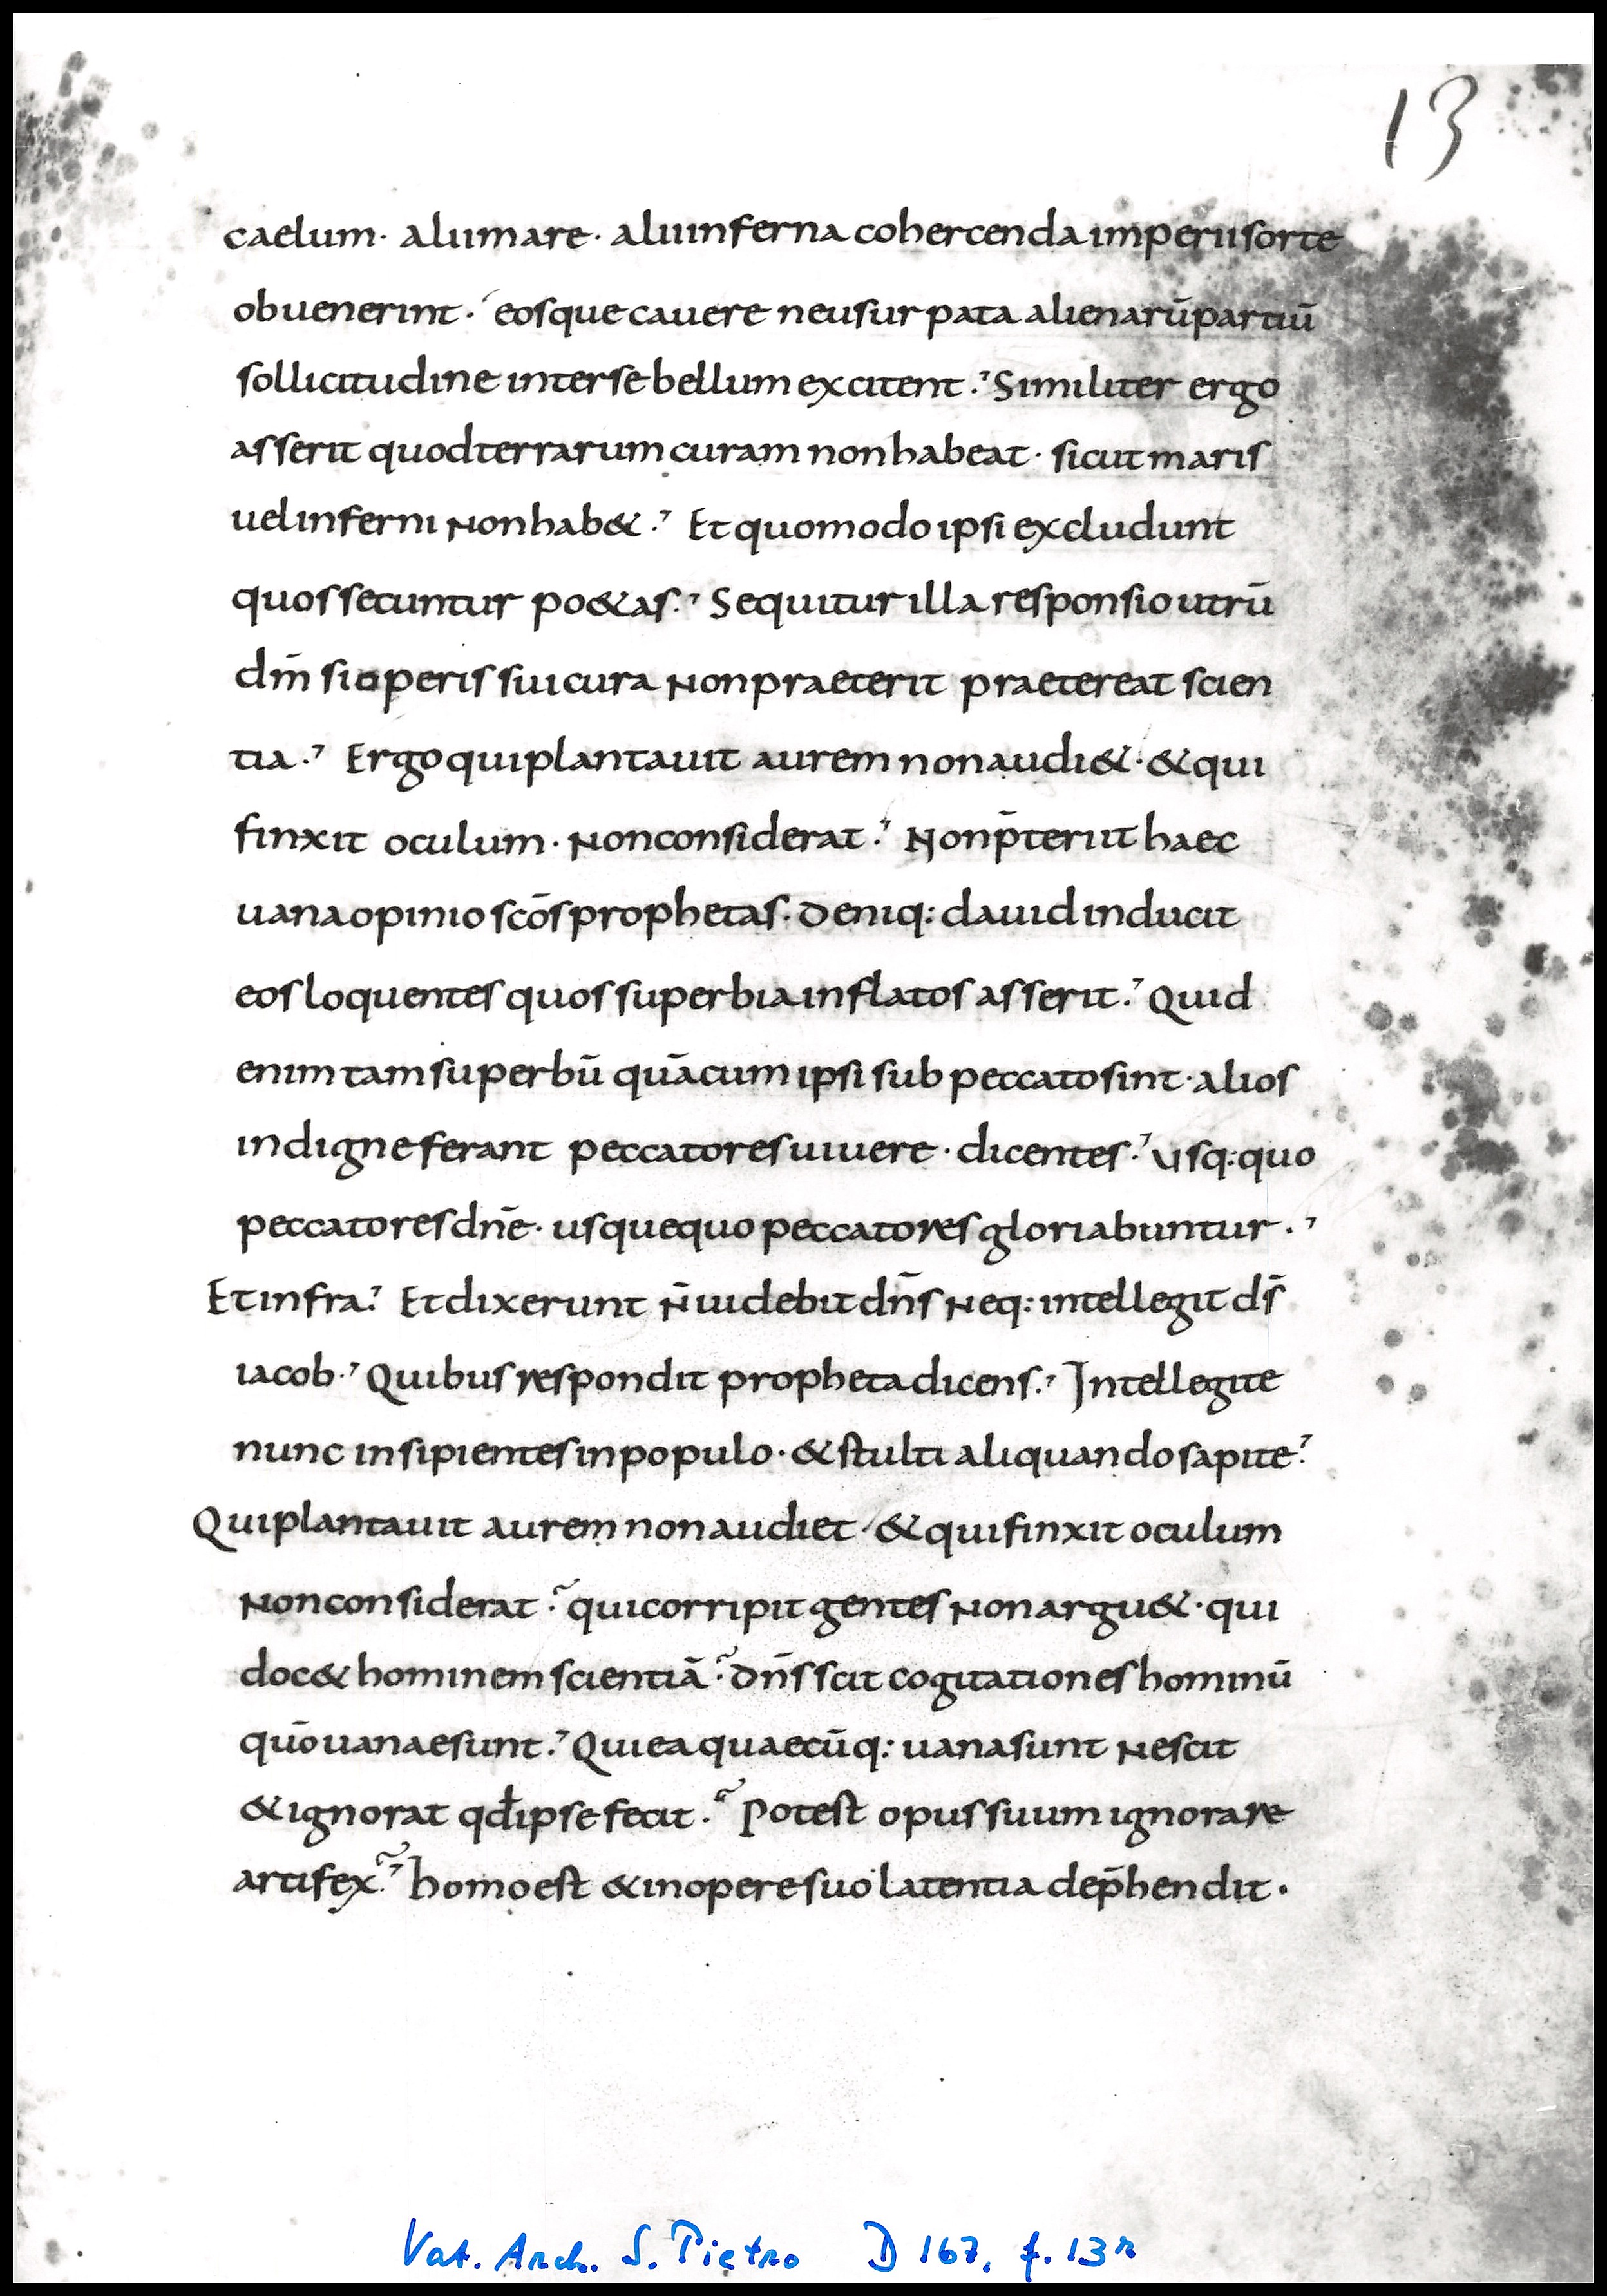 13
caelum · alii mare · alii inferna cohercenda imperii sorte
obuenerint · eosque cauere ne usurpata alienarū partiū
sollicitudine inter se bellum excitent .' Similiter ergo
asserit quod terrarum curam non habeat · sicut maris
uel inferni non hab& .' Et quomodo ipsi excludunt
quos secuntur po&as .' Sequitur illa responsio utrū
dm̄ si operis sui cura non praeterit praetereat scien
tia .' Ergo qui plantauit aurem non audi& · & qui
finxit oculum · non considerat .' Non p̄teriit haec
uana opinio scōs prophetas · deniq: dauid inducit
eos loquentes quos superbia inflatos asserit .' Quid
enim tam superbū quā cum ipsi sub peccato sint · alios
indigne ferant peccatores uiuere · dicentes .' usq: quo
peccatores dn̄e · usquequo peccatores gloriabuntur .'
Et infra .' Et dixerunt n̄ uidebit dn̄s neq: intellegit ds̄
iacob .' Quibus respondit propheta dicens .' Intellegite
nunc insipientes in populo · & stulti aliquando sapite .'
Qui plantauit aurem non audiet · & qui finxit oculum
non considerat .~ qui corripit gentes non argu& · qui
doc& hominem scientiā .~ dn̄s scit cogitationes hominū
quō uanae sunt .' Qui ea quaecūq: uana sunt nescit
& ignorat qđ ipse fecit .~ Potest opus suum ignorare
artifex .~' homo est & in opere suo latentia dep̄hendit ·
Vat. Arch. S. Pietro D 167, f. 13r